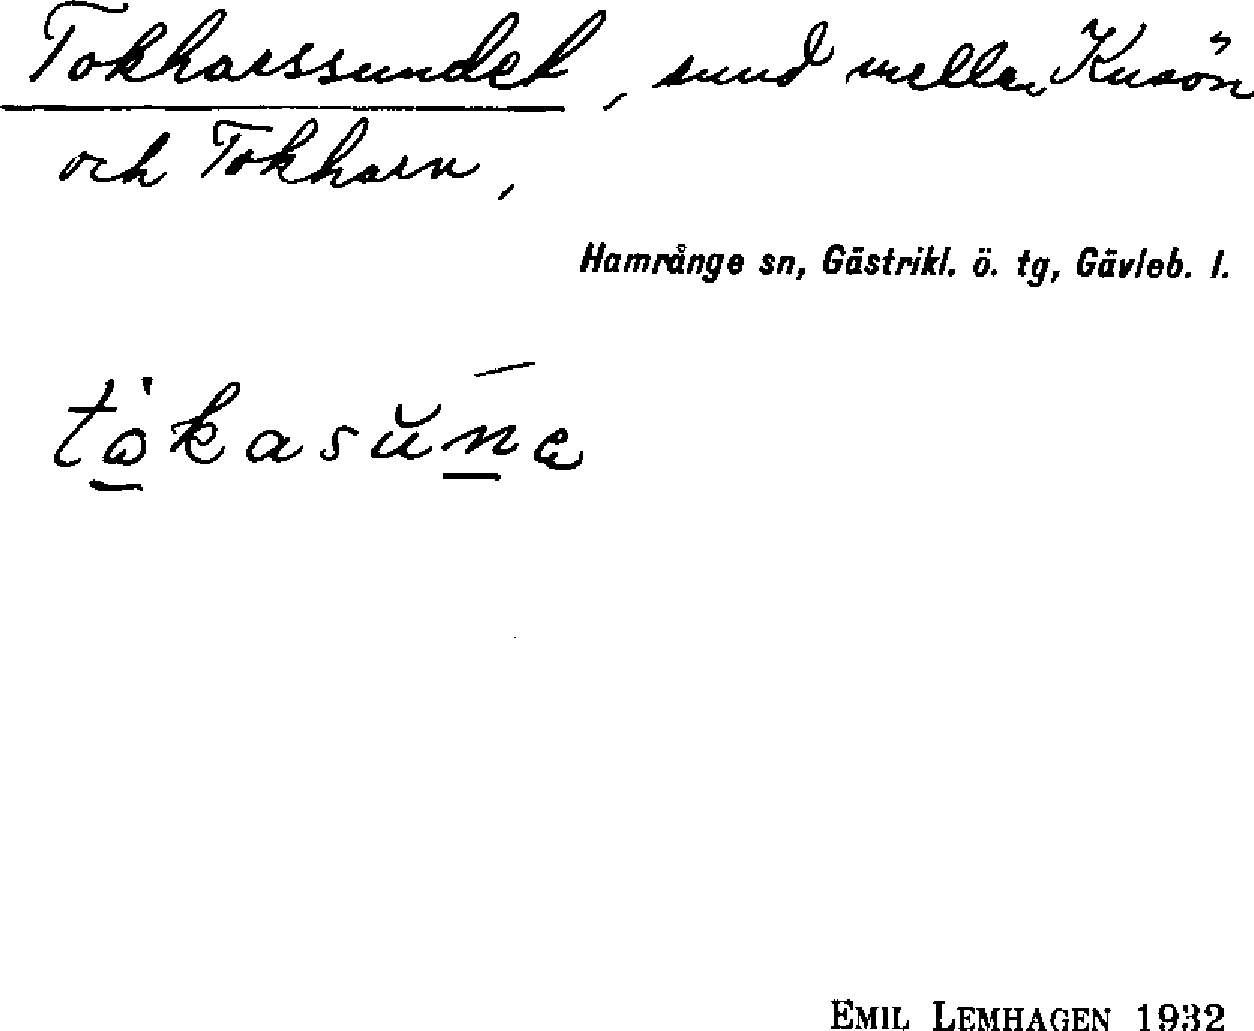 Tokharssundet, sund mellan Kusön
och Tokharn,
Hamrånge sn, Gästrikl. ö. tg, Gävleb. l.
EMIL LEMHAGEN 1932